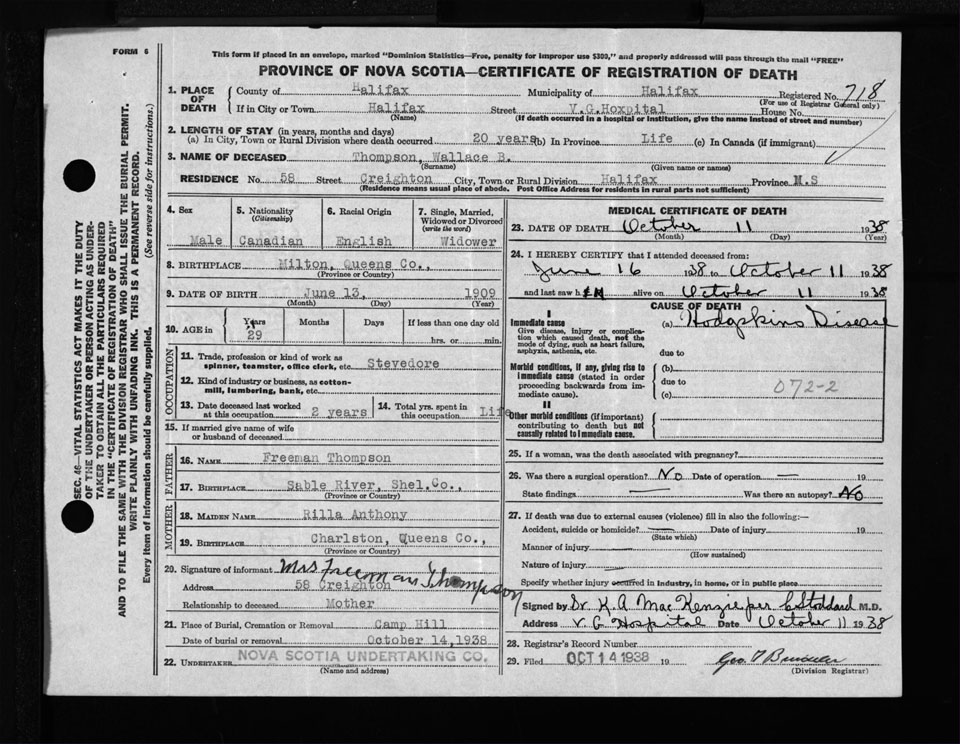 FORM 6
This form if placed in an envelope, marked "Dominion Statistics—Free, penalty for improper use $300," and properly addressed will pass through the mail "FREE"
PROVINCE OF NOVA SCOTIA—CERTIFICATE OF REGISTRATION OF DEATH
1. PLACE OF DEATH
County of Halifax Municipality of Halifax Registered No. 718
(For use of Registrar General only)
If in City or Town Halifax Street V.G.Hoxpital House No.
(Name) (If death occurred in a hospital or institution, give the name instead of street and number)
2. LENGTH OF STAY (in years, months and days)
(a) In City, Town or Rural Division where death occurred 20 years (b) In Province Life (c) In Canada (if immigrant)
3. NAME OF DECEASED Thompson, Wallace B.
(Surname) (Given name or names)
RESIDENCE No. 58 Street Creighton City, Town or Rural Division Halifax Province N.S
(Residence means usual place of abode. Post Office Address for residents in rural parts not sufficient)
4. Sex 5. Nationality (Citizenship) 6. Racial Origin 7. Single, Married, Widowed or Divorced (write the word)
Male Canadian English Widower
8. BIRTHPLACE Milton, Queens Co.,
(Province or Country)
9. DATE OF BIRTH June 13, 1909
(Month) (Day) (Year)
10. AGE in Years Months Days If less than one day old
29 hrs. or min.
OCCUPATION
11. Trade, profession or kind of work as spinner, teamster, office clerk, etc. Stevedore
12. Kind of industry or business, as cotton-mill, lumbering, bank, etc.
13. Date deceased last worked at this occupation 2 years 14. Total yrs. spent in this occupation Life
15. If married give name of wife or husband of deceased
FATHER
16. NAME Freeman Thompson
17. BIRTHPLACE Sable River, Shel.Co.,
(Province or Country)
MOTHER
18. MAIDEN NAME Rilla Anthony
19. BIRTHPLACE Charlston, Queens Co.,
(Province or Country)
20. Signature of informant Mrs Freeman Thompson
Address 58 Creighton
Relationship to deceased Mother
21. Place of Burial, Cremation or Removal Camp Hill
Date of burial or removal October 14,1938
22. UNDERTAKER NOVA SCOTIA UNDERTAKING CO.
(Name and address)
MEDICAL CERTIFICATE OF DEATH
23. DATE OF DEATH October 11 1938
(Month) (Day) (Year)
24. I HEREBY CERTIFY that I attended deceased from:
June 16 1938 to October 11 1938
and last saw him alive on October 11 1938
CAUSE OF DEATH
I
Immediate cause (a) Hodgpkins Disease
Give disease, injury or complication which caused death, not the mode of dying, such as heart failure, asphyxia, asthenia, etc.
due to
Morbid conditions, if any, giving rise to immediate cause (stated in order proceeding backwards from immediate cause).
(b)
due to 072-2
(c)
II
Other morbid conditions (if important) contributing to death but not causally related to immediate cause.
25. If a woman, was the death associated with pregnancy?
26. Was there a surgical operation? No Date of operation — 19
State findings — Was there an autopsy? No
27. If death was due to external causes (violence) fill in also the following:—
Accident, suicide or homicide? — Date of injury — 19
(State which)
Manner of injury —
(How sustained)
Nature of injury —
Specify whether injury occurred in industry, in home, or in public place
Signed by Dr. K. A MacKenzie per C Stoddard M.D.
Address V G Hospital Date October 11 1938
28. Registrar's Record Number
29. Filed OCT 14 1938 19
(Division Registrar)
SEC. 46—VITAL STATISTICS ACT MAKES IT THE DUTY
OF THE UNDERTAKER OR PERSON ACTING AS UNDER-
TAKER TO OBTAIN ALL THE PARTICULARS REQUIRED
IN THE "CERTIFICATE OF REGISTRATION OF DEATH"
AND TO FILE THE SAME WITH THE DIVISION REGISTRAR WHO SHALL ISSUE THE BURIAL PERMIT.
WRITE PLAINLY WITH UNFADING INK. THIS IS A PERMANENT RECORD.
Every item of information should be carefully supplied. (See reverse side for instructions.)